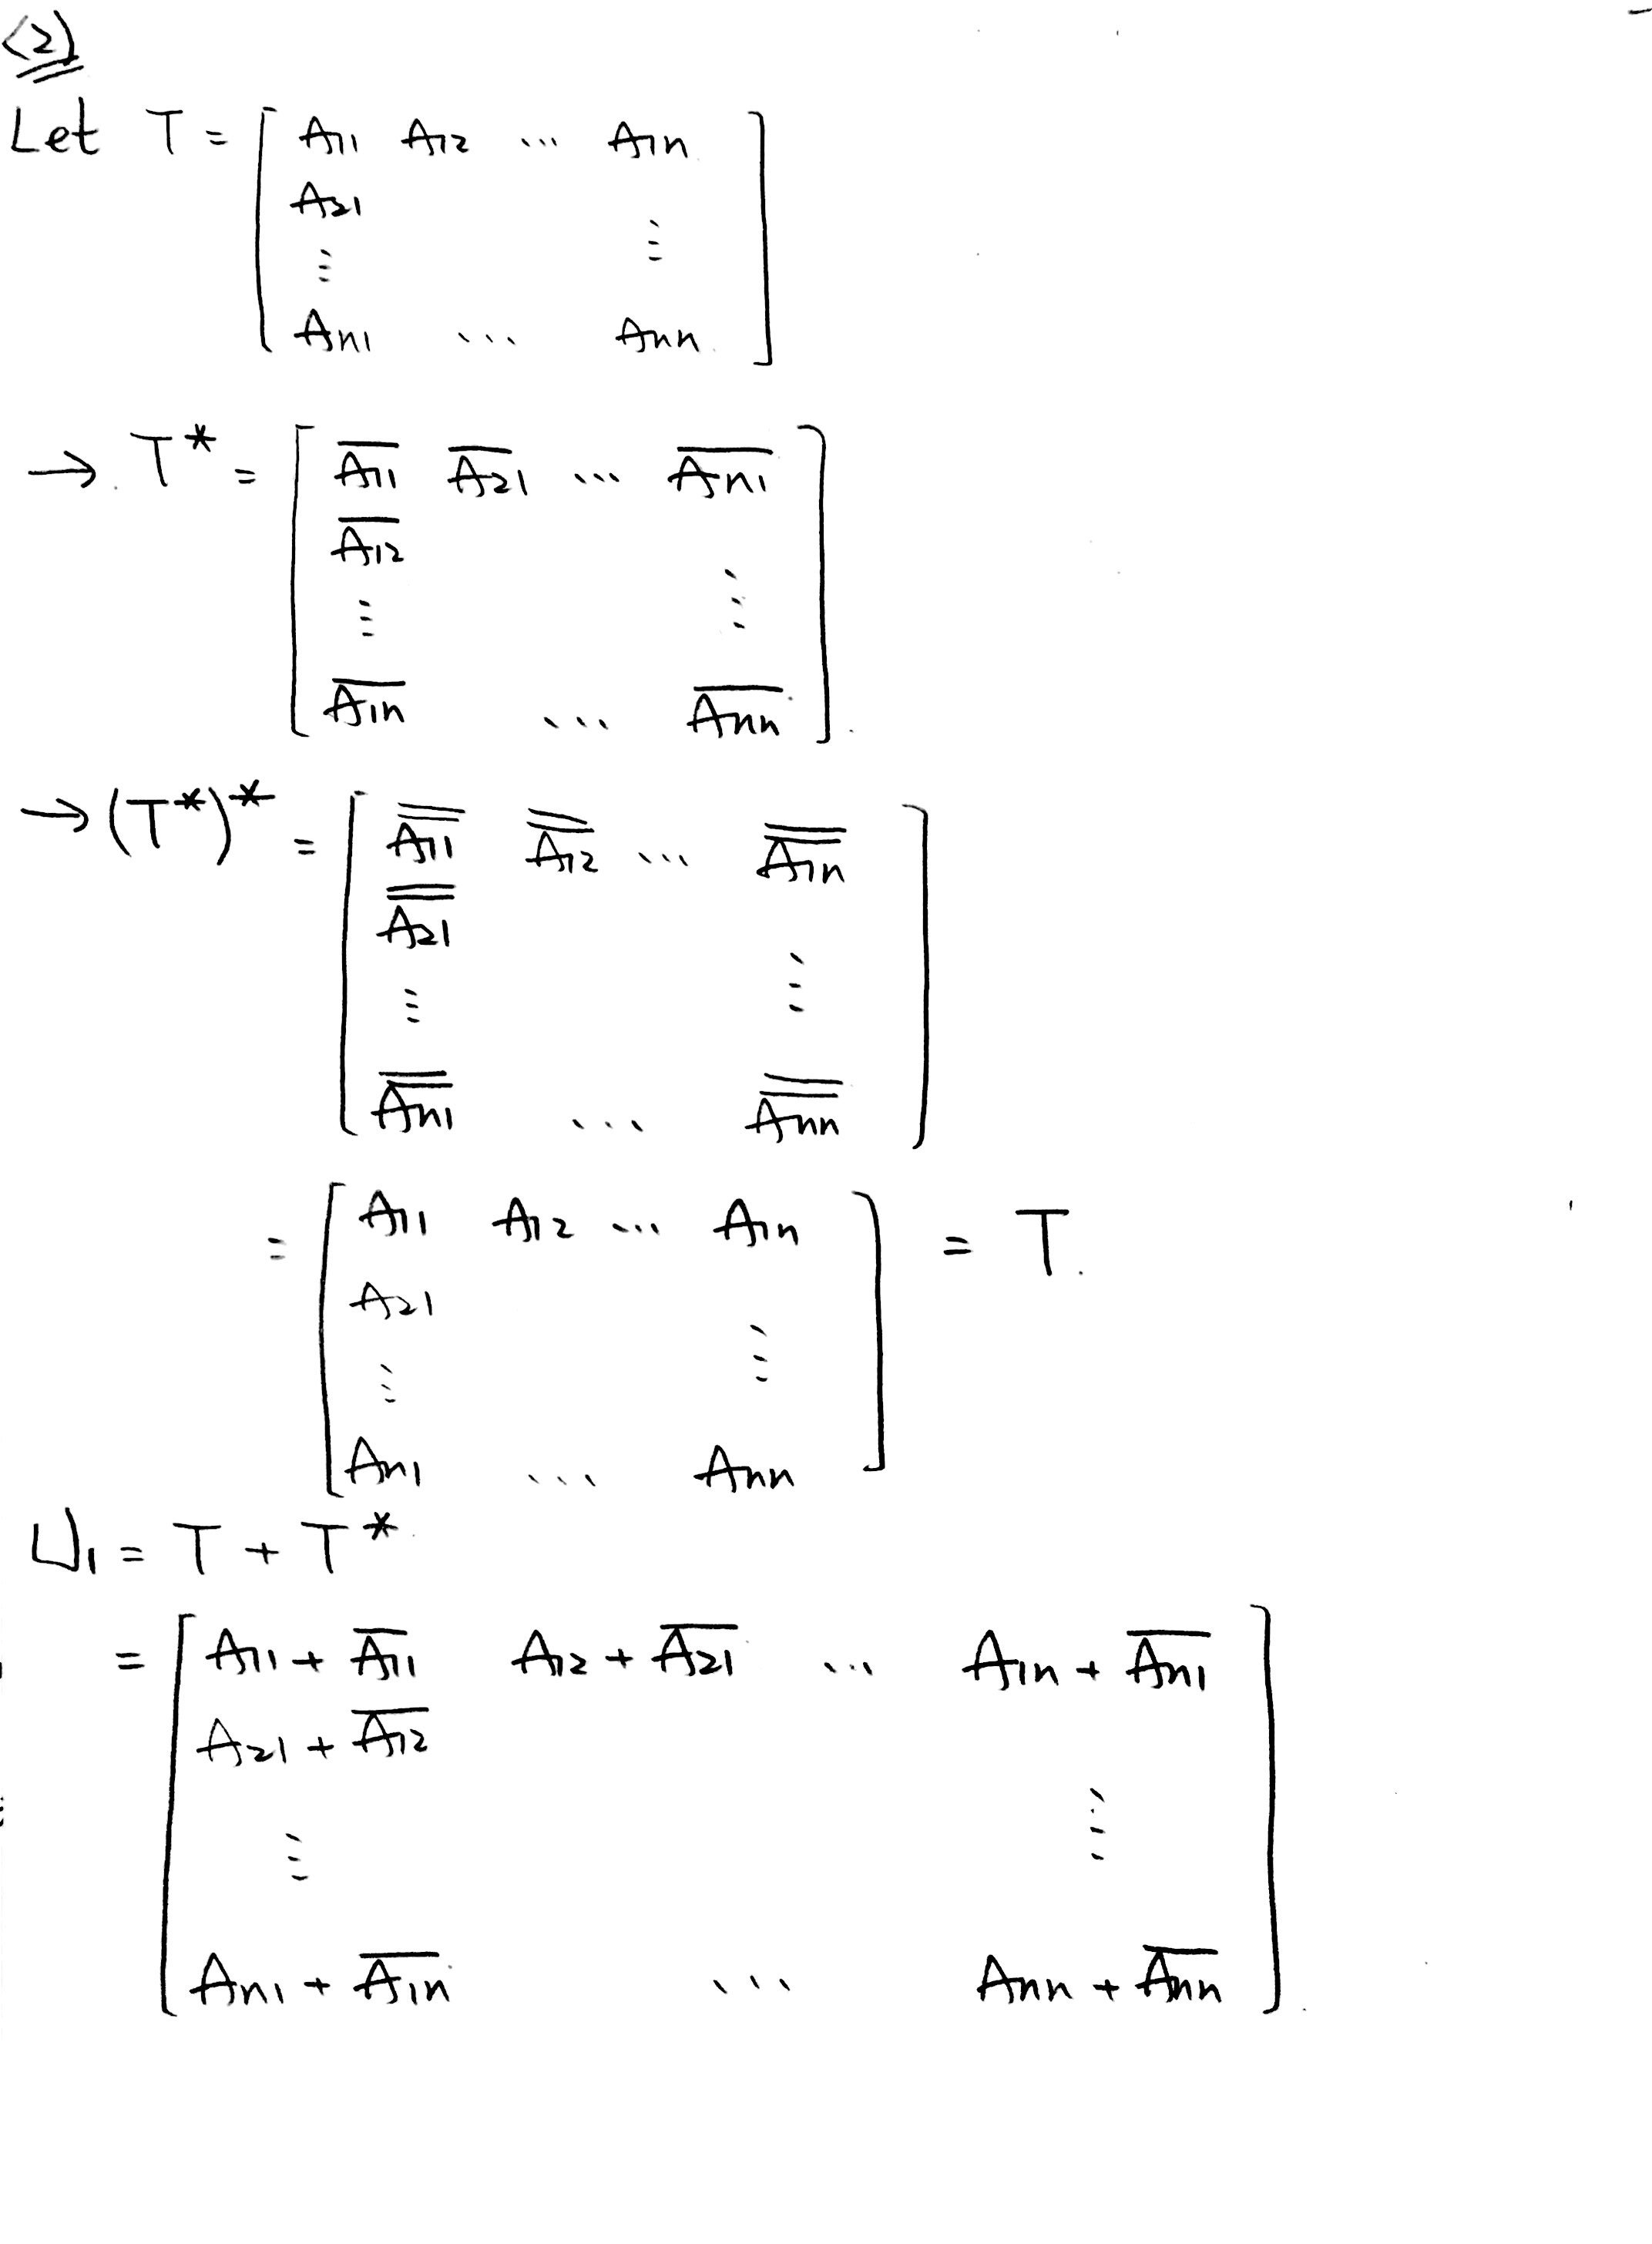 (2)
Let T = [ A11 A12 ... A1n
A21 ⋮
⋮
An1 ... Ann ]
→ T* = [ A̅1̅1̅ A̅2̅1̅ ... A̅n̅1̅
A̅1̅2̅
⋮ ⋮
A̅1̅n̅ ... A̅n̅n̅ ]
→ (T*)* = [ A̿1̿1̿ A̿1̿2̿ ... A̿1̿n̿
A̿2̿1̿
⋮ ⋮
A̿n̿1̿ ... A̿n̿n̿ ]
= [ A11 A12 ... A1n
A21
⋮ ⋮
An1 ... Ann ] = T.
U1 = T + T*
= [ A11 + A̅1̅1̅ A12 + A̅2̅1̅ ... A1n + A̅n̅1̅
A21 + A̅1̅2̅
⋮ ⋮
An1 + A̅1̅n̅ ... Ann + A̅n̅n̅ ]